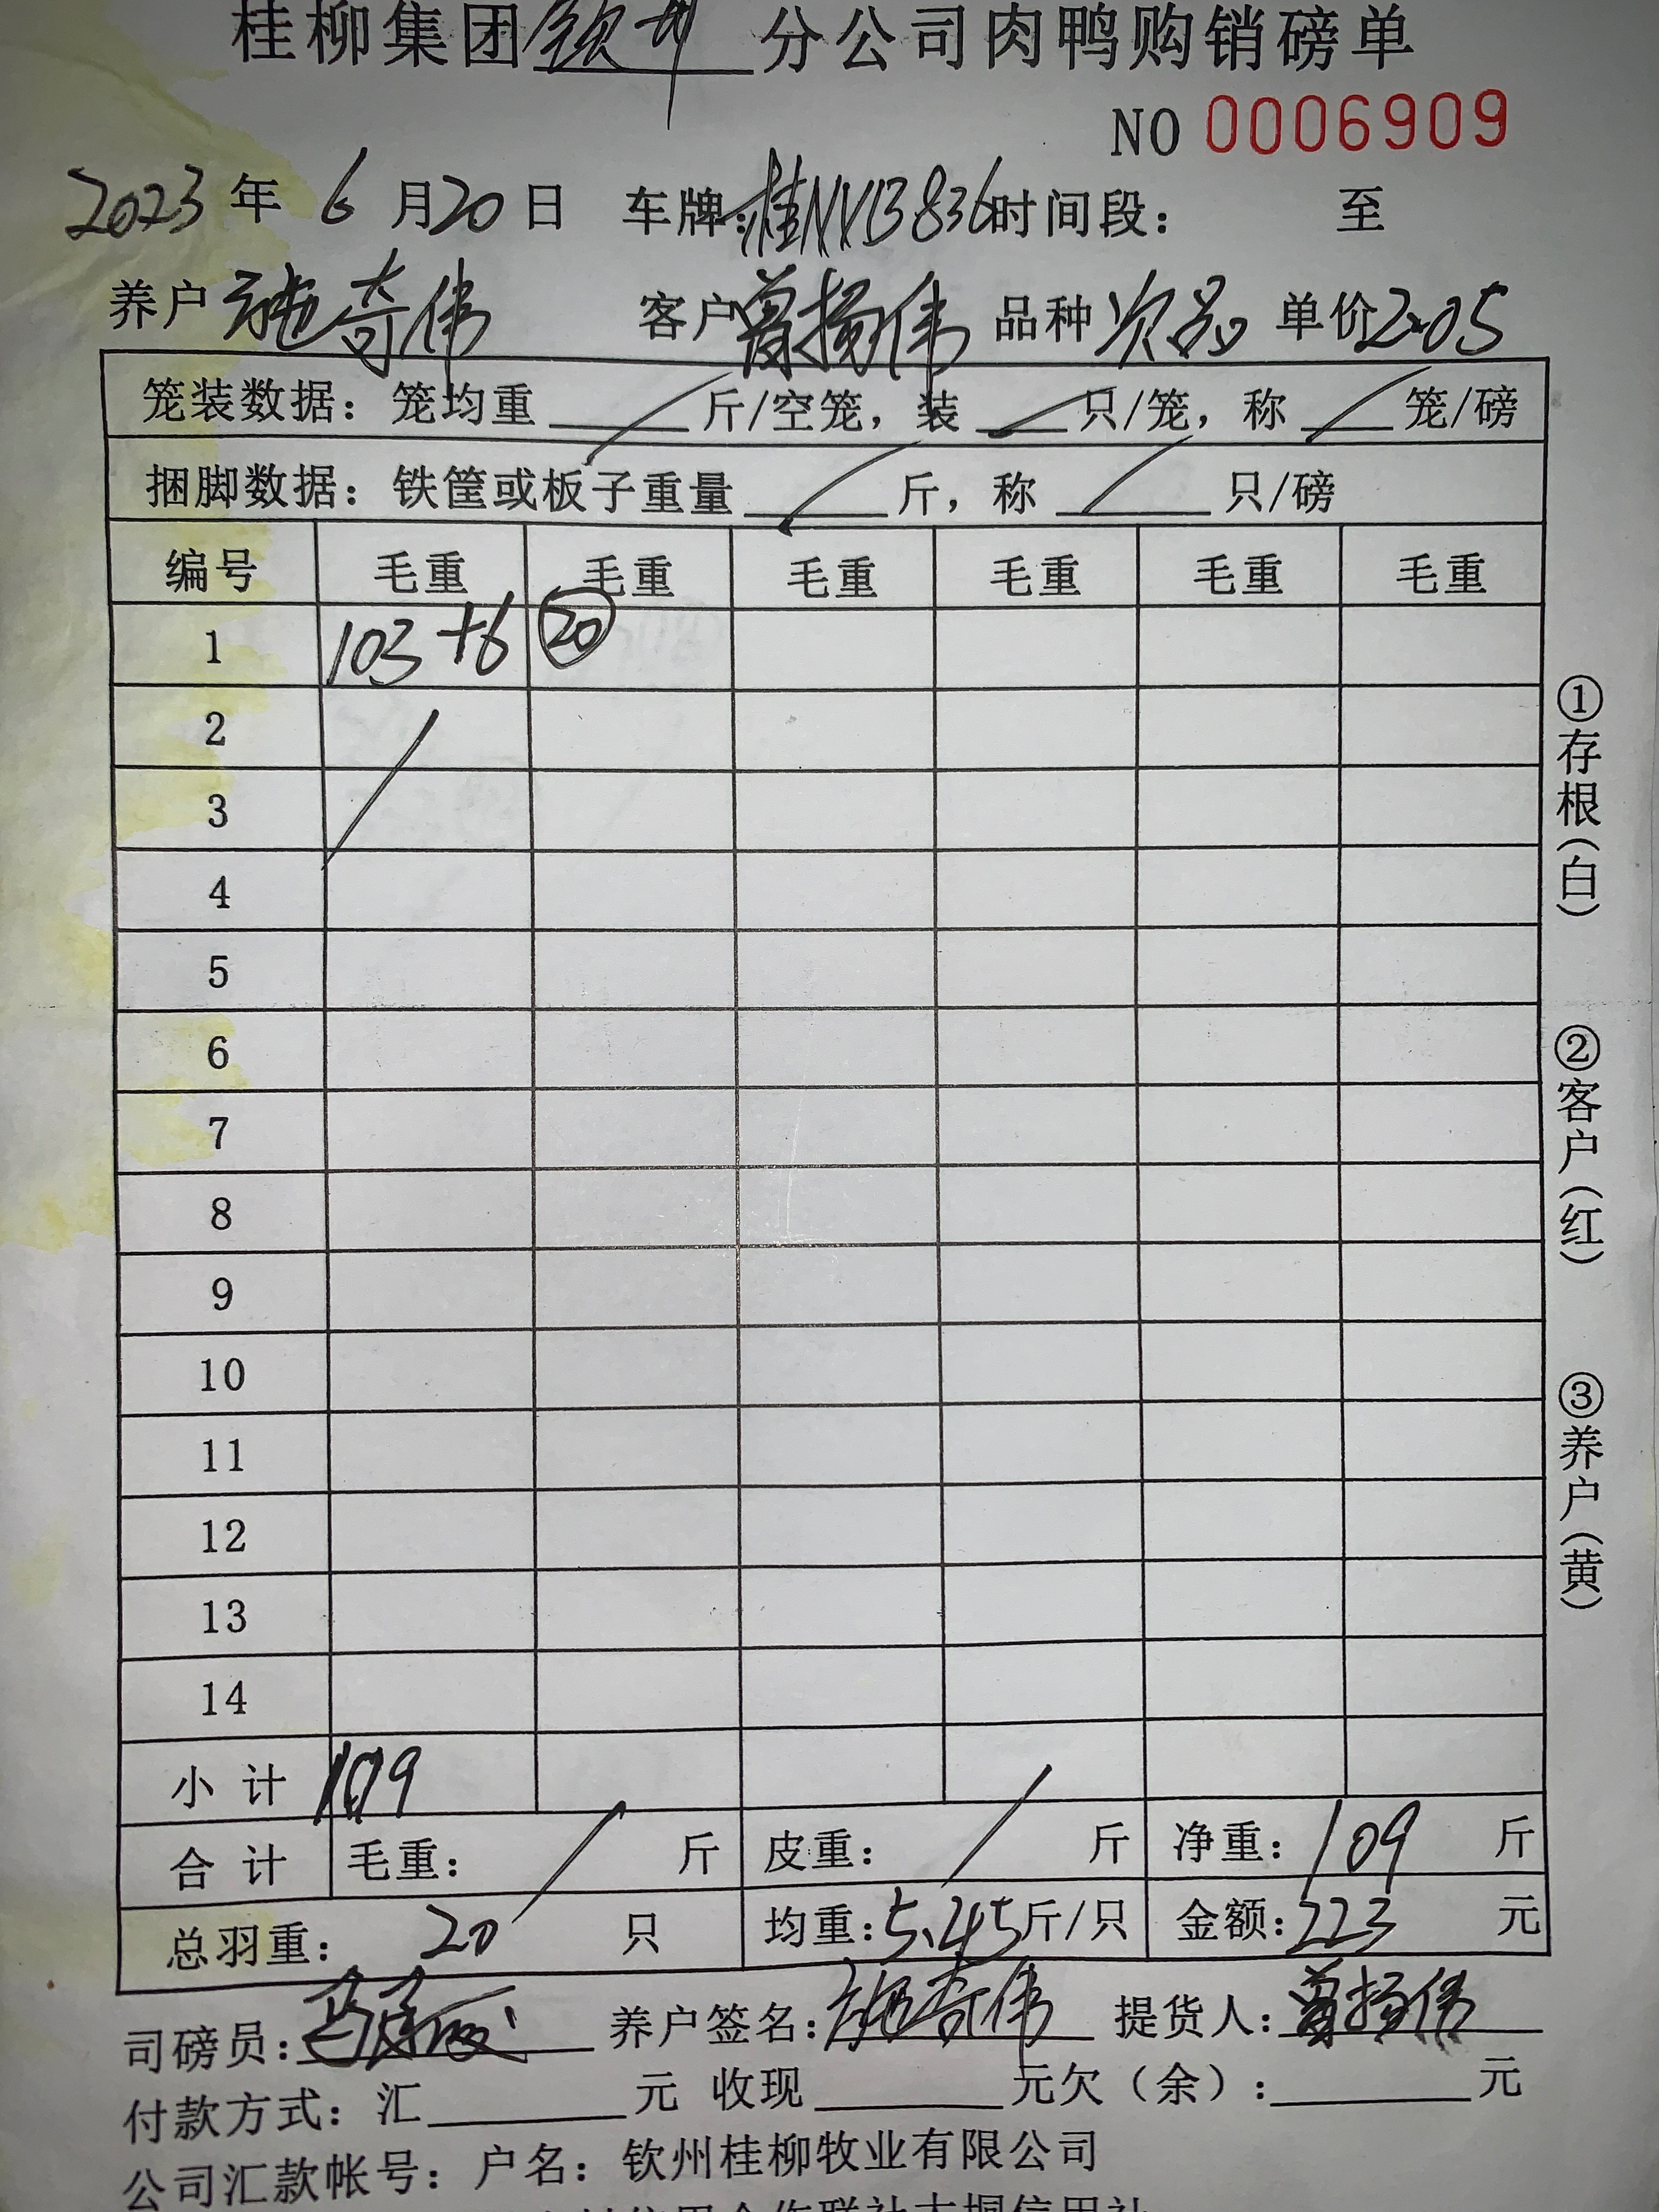 桂柳集团钦州分公司肉鸭购销磅单
NO 0006909
2023年6月20日 车牌:桂NXB836时间段: 至
养户 施奇伟 客户 曾扬伟 品种 次品 单价2.05
笼装数据: 笼均重 斤/空笼, 装 只/笼, 称 笼/磅
捆脚数据: 铁筐或板子重量 斤, 称 只/磅
编号 毛重 毛重 毛重 毛重 毛重 毛重
1 103+6 20
2
3
4
5
6
7
8
9
10
11
12
13
14
小计 109
合计 毛重: 斤 皮重: 斤 净重: 109 斤
总羽重: 20 只 均重:5.45斤/只 金额:223 元
司磅员: 养户签名:施奇伟 提货人:曾扬伟
付款方式: 汇 元 收现 元欠(余): 元
公司汇款帐号: 户名: 钦州桂柳牧业有限公司
①存根(白)
②客户(红)
③养户(黄)